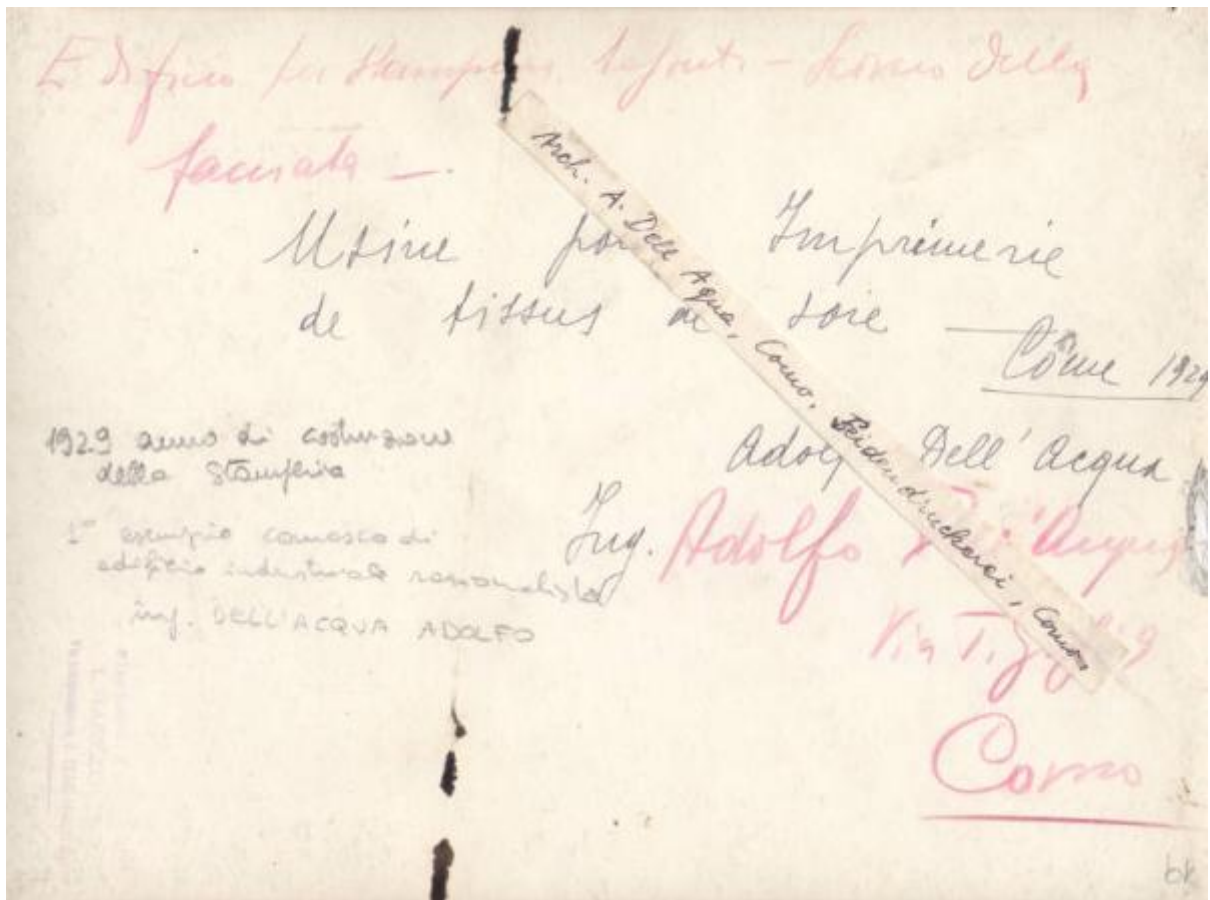 Edificio per stamperia tessuti - Scorcio della
facciata -
Usine pour Imprimerie
de tissus de soie -
Côme 1929
Arch. A. Dell Aqua, Como, Seidendruckerei, Como
1929 anno di costruzione
della Stamperia
1° esempio comasco di
edificio industriale razionalista
ing. DELL'ACQUA ADOLFO
Adolf Dell' Acqua
Ing. Adolfo Dell'Acqua
Via
Como